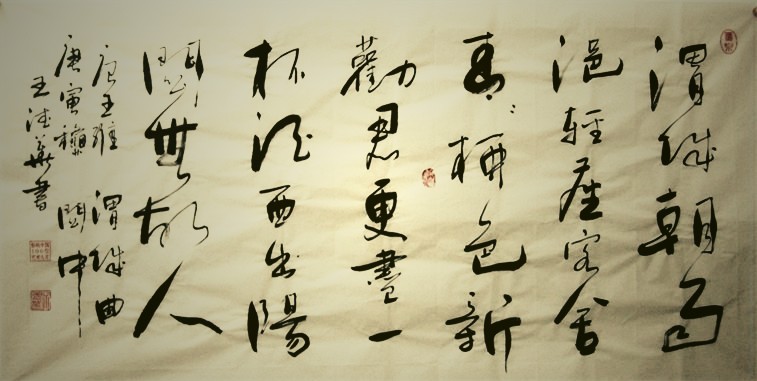 渭城朝雨
浥輕塵客舍
青〻柳色新
勸君更盡一
杯酒西出陽
關無故人
唐王維 渭城曲
庚寅穐 關中
王 書